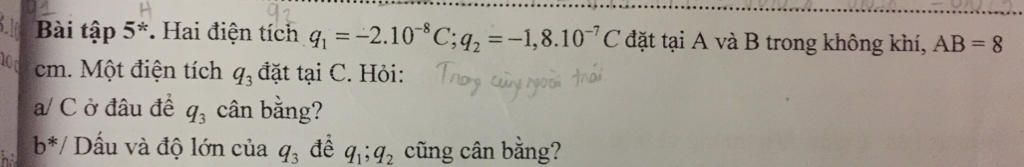 Bài tập 5*. Hai điện tích q₁ = −2.10⁻⁸ C; q₂ = −1,8.10⁻⁷ C đặt tại A và B trong không khí, AB = 8
cm. Một điện tích q₃ đặt tại C. Hỏi: Trong cùng ngoài trái
a/ C ở đâu để q₃ cân bằng?
b*/ Dấu và độ lớn của q₃ để q₁; q₂ cũng cân bằng?